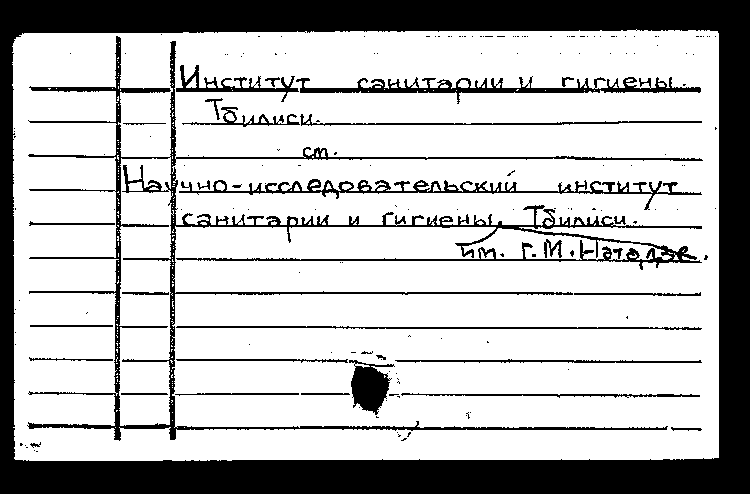 Институт санитарии и гигиены.
Тбилиси.
см.
Научно-исследовательский институт
санитарии и гигиены, Тбилиси.
им. Г.М. Натадзе.